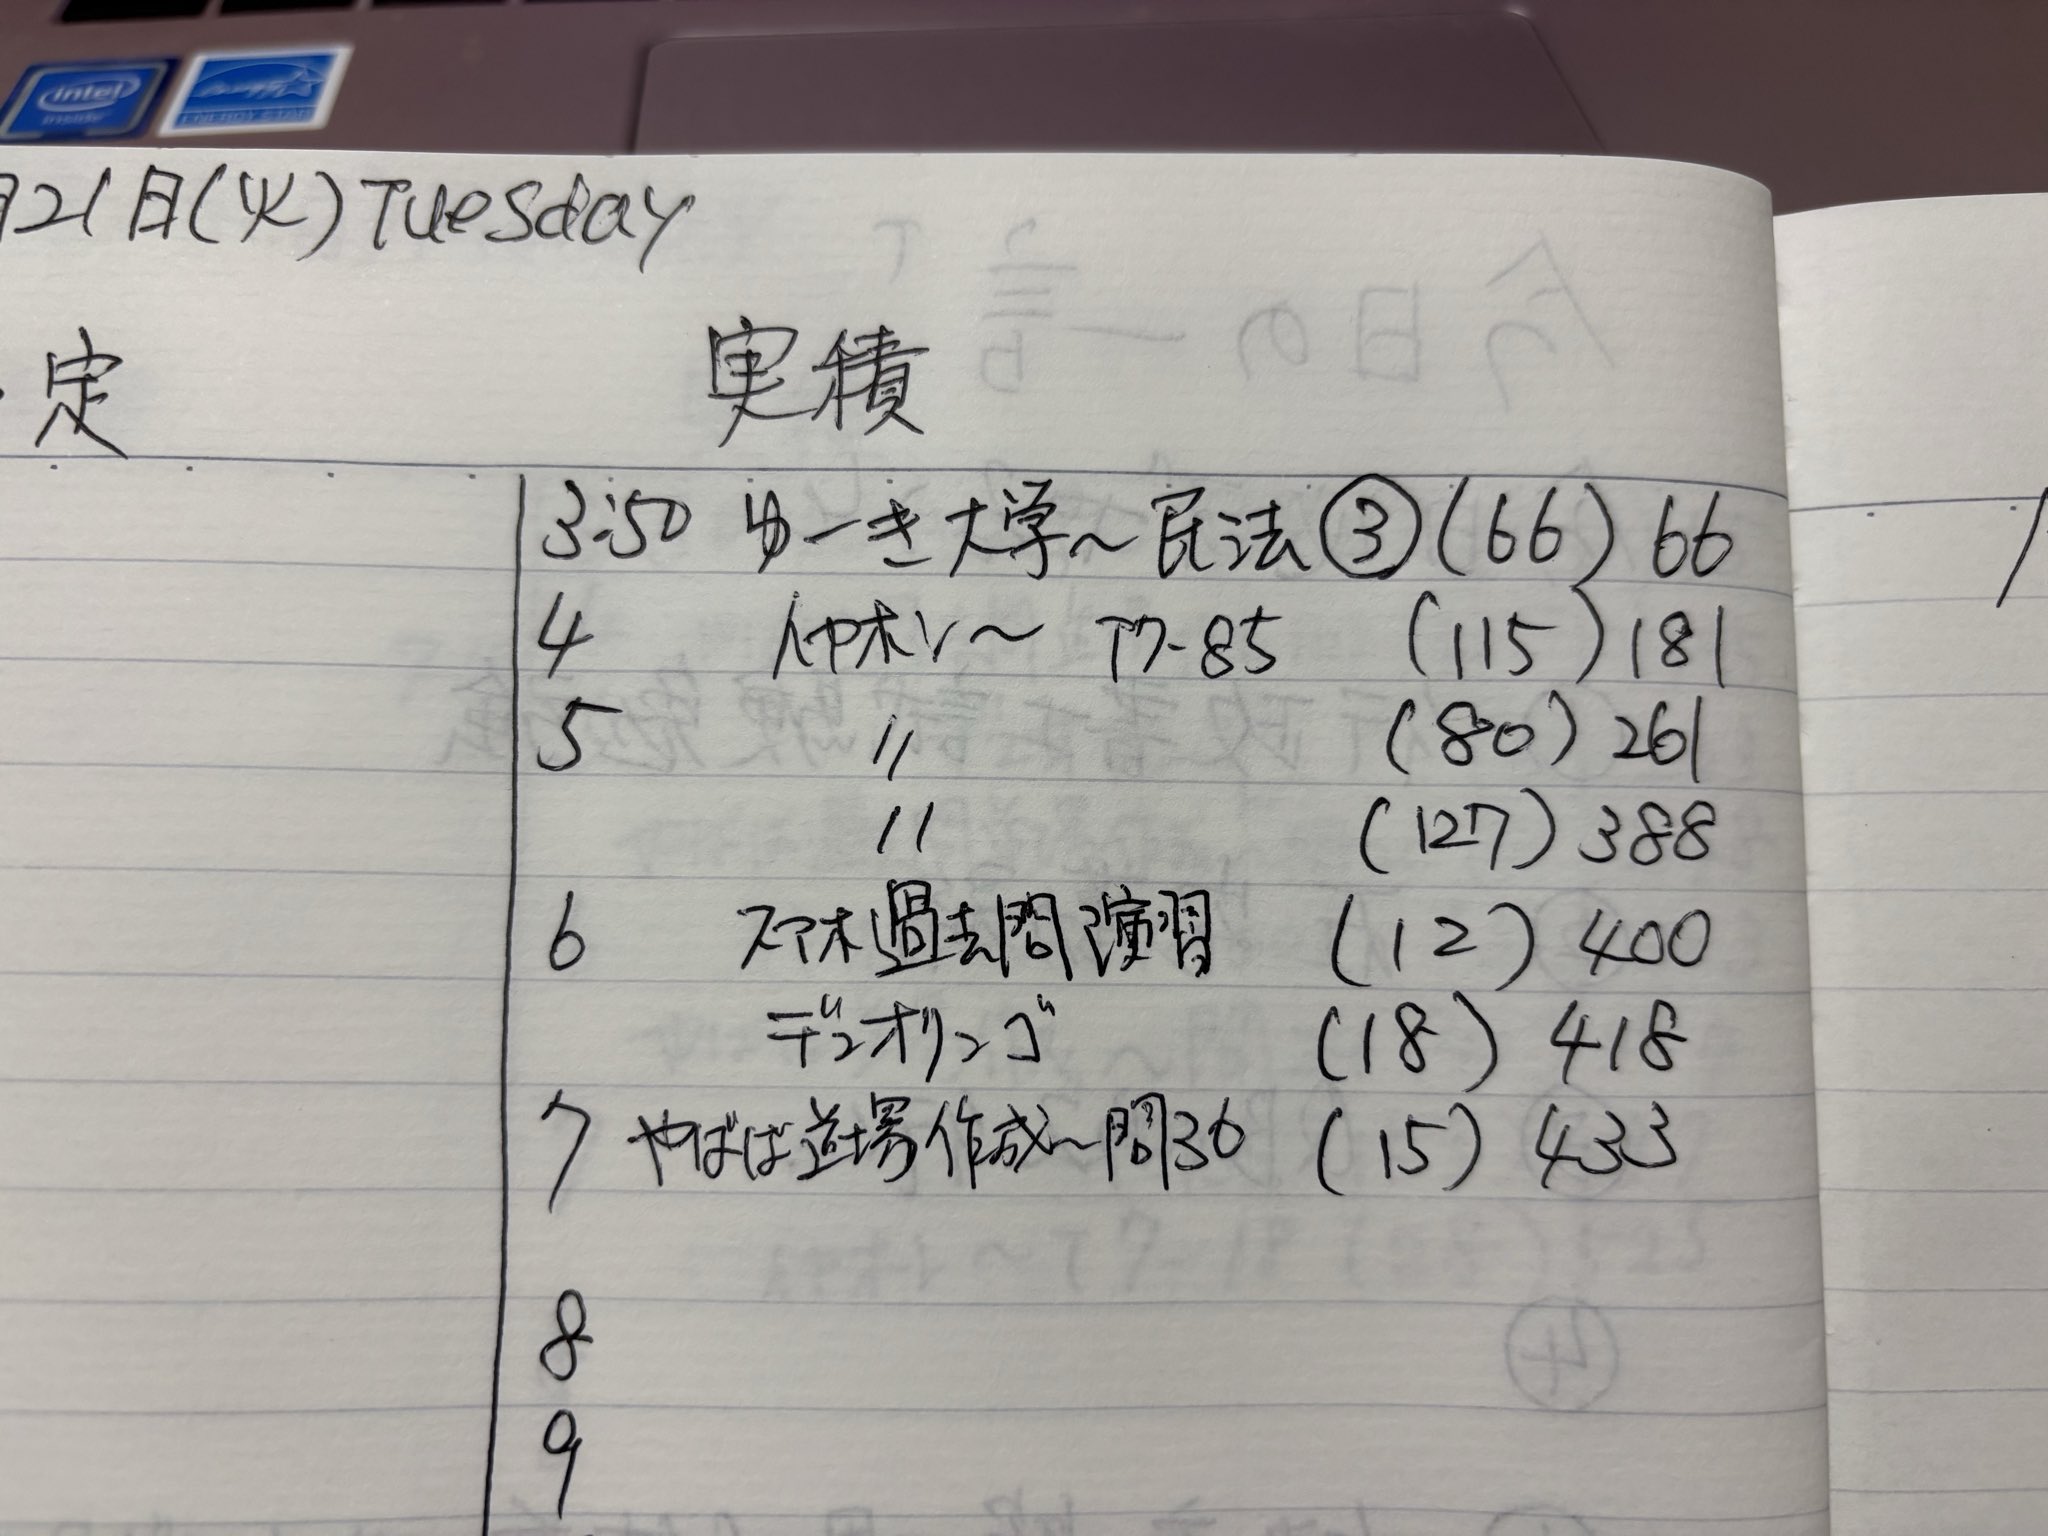 intel
inside
ENERGY STAR
月21日(火)Tuesday
定 実積
3:50 ゆーき大学〜民法③(66)66
4 イヤホン〜 ア7-85 (115)181
5 〃 (80)261
〃 (127)388
6 スマホ過去問演習 (12)400
デュオリンゴ (18)418
7 やばば道場作成〜問36 (15)433
8
9